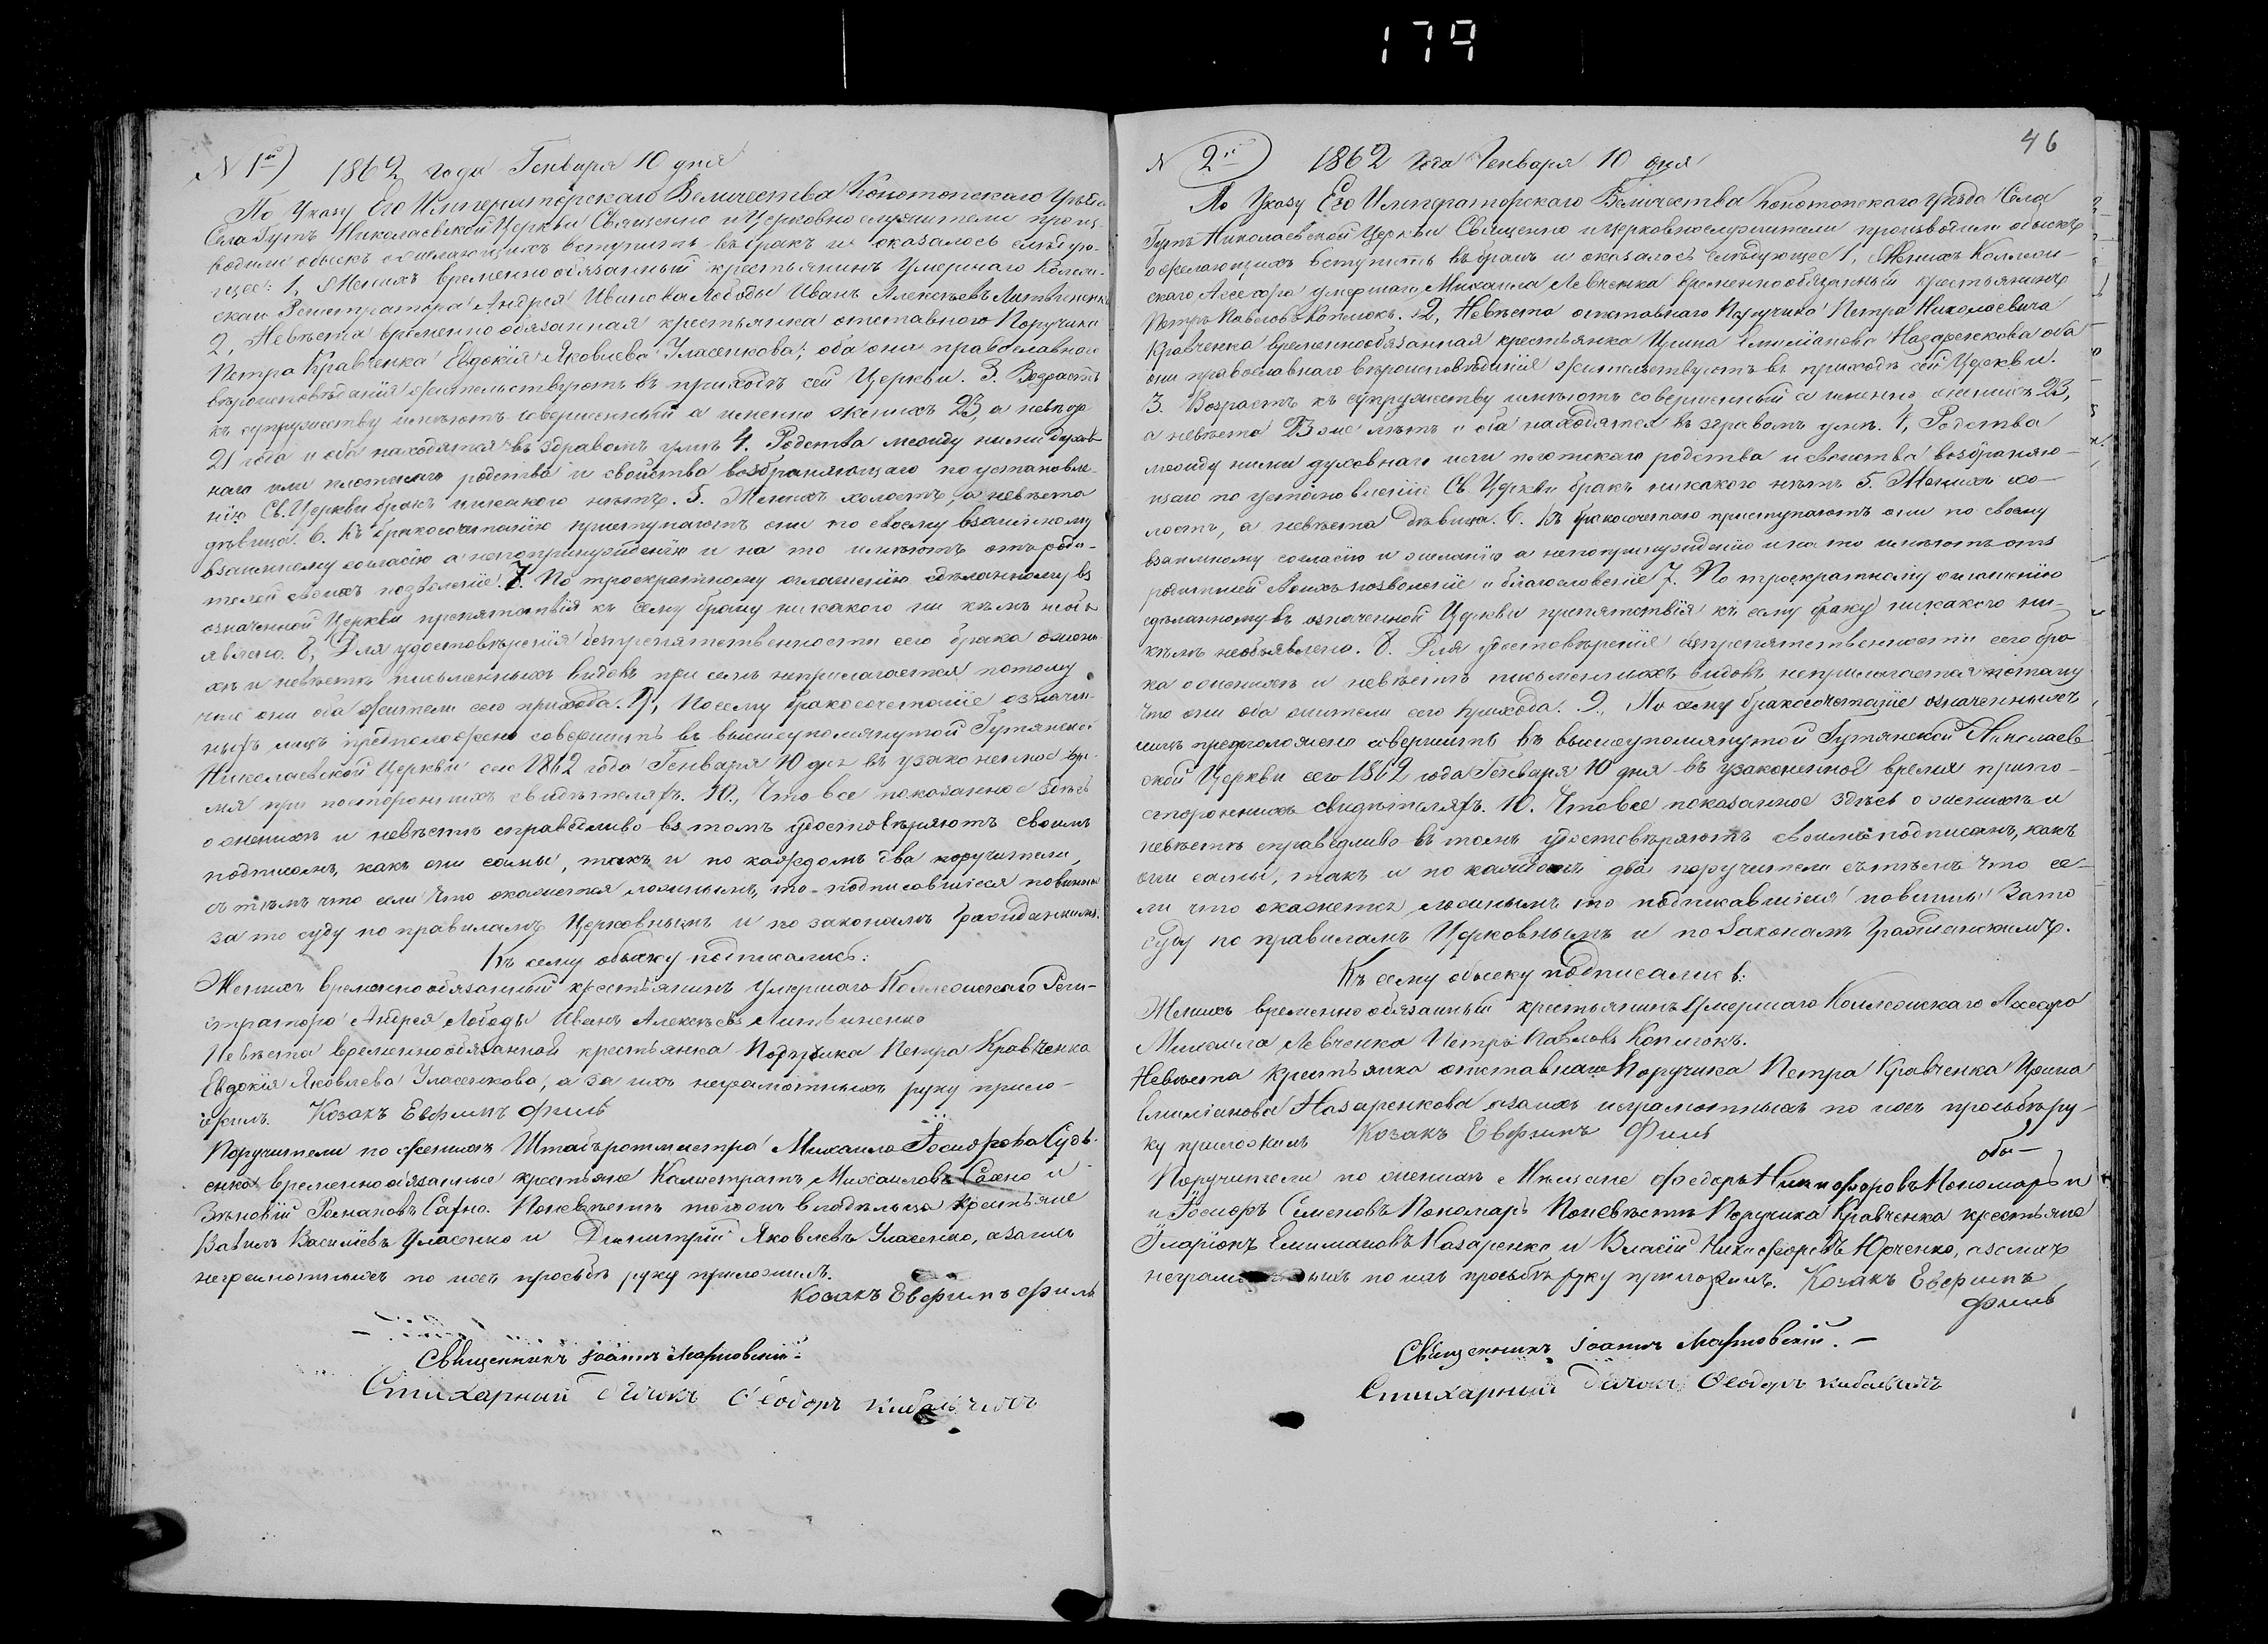 179
N 1й) 1862 года Генваря 10 дня
По Указу Его Императорскаго Величества Конотопскаго Уѣзда
Села Гутъ Николаевской Церкви Священно и Церковно служители произ-
водили обыскъ о желающихъ вступить въ бракъ и оказалось слѣдую-
щее: 1, Женихъ временно обязанный крестьянинъ Умершаго Коллеж-
скаго Регистратора Андрея Иванова Лободы Иванъ Алексѣевъ Литвиненко
2, Невѣста временно обязанная крестьянка отставного Поручика
Петра Кравченка Евдокія Яковлева Уласенкова; оба они православнаго
вѣроисповѣданія жительствуютъ въ приходѣ сей Церкви. 3. Возрастъ
къ супружеству имѣютъ совершенный а именно женихъ 23, а невѣста
21 года и оба находятся въ здравомъ умѣ 4. Родства между ними духов-
наго или плотскаго родства и свойства возбраняющаго по установле-
нію Св. Церкви бракъ никакого нѣтъ. 5. Женихъ холостъ, а невѣста
дѣвица. 6. Къ бракосочетанію приступаютъ они по своему взаимному
взаимному согласію а непопринужденію и на то имѣютъ отъ роди-
телей своихъ позволеніе. 7. По троекратному оглашенію сдѣланному въ
означенной Церкви препятствія къ сему браку никакого ни кѣмъ необъ
явлено. 8, Для удостовѣренія безпрепятственности сего брака о жени-
хѣ и невѣстѣ письменныхъ видовъ при семъ неприлагается потому
что они оба жители сего прихода. 9, Посему бракосочетаніе означен-
ныхъ лицъ предположено совершить въ вышеупомянутой Гутянской
Николаевской Церкви сего 1862 года Генваря 10 дня въ узаконенное вре-
мя при постороннихъ свидѣтеляхъ. 10., Что все показанное здѣсь
о женихѣ и невѣстѣ справедливо въ томъ удостовѣряютъ своимъ
подписомъ, какъ они самы, такъ и по каждомъ два поручители,
съ тѣмъ что если что окажется ложнымъ, то подписавшіеся повинны
за то суду по правиламъ Церковнымъ и по законамъ Гражданскимъ.
Къ сему обыску подписались:
Женихъ временно обязанный крестьянинъ умершаго Коллежскаго Реги-
стратора Андрея Лободы Иванъ Алексѣевъ Литвиненко
Невѣста временно обязанная крестьянка Поручика Петра Кравченка
Евдокія Яковлева Уласенкова, а за ихъ неграмотныхъ руку прило-
жилъ. Козакъ Евфимъ Филь
Поручители по женихѣ Штабъротмистра Михаила Іосифова Судь-
енка временно обязанные крестьяне Калистратъ Михаиловъ Сахно и
Зѣновій Романовъ Сахно. По невѣстѣ той же владѣльца крестьяне
Вавилъ Василіевъ Уласенко и Димитрій Яковлевъ Уласенко, а за ихъ
неграмотныхъ по ихъ просьбѣ руку приложилъ.
Козакъ Евфимъ Филь
Священникъ Іоаннъ Мартовскій.
Стихарный Дьячокъ Ѳеодоръ Кибальчичъ
46
N 2й) 1862 года Генваря 10 дня
По Указу Его Императорскаго Величества Конотопскаго уѣзда Села
Гутъ Николаевской Церкви Священно и церковнослужители производили обыскъ
о желающихъ вступить въ бракъ и оказалось слѣдующее 1, Женихъ Коллеж-
скаго Ассесора умершаго Михаила Левченка временнообязанный крестьянинъ
Петръ Павловъ Копилокъ. 2, Невѣста отставнаго Поручика Петра Николаевича
Кравченка временнообязанная крестьянка Ирина Емиліанова Назаренкова оба
они православнаго вѣроисповѣданія жительствуютъ въ приходѣ сей Церкви.
3. Возрастъ къ супружеству имѣютъ совершенный а именно женихъ 23,
а невѣста 23 же лѣтъ и оба находятся въ здравомъ умѣ. 4, Родства
между ними духовнаго или плотскаго родства и свойства возбраняю-
щаго по установленію Св. Церкви бракъ никакого нѣтъ 5. Женихъ хо-
лостъ, а невѣста дѣвица. 6. Къ бракосочетанію приступаютъ они по своему
взаимному согласію и желанію а непопринужденію и на то имѣютъ отъ
родителей своихъ позволеніе и благословеніе 7. По троекратному оглашенію
сдѣланному въ означенной Церкви препятствія къ сему браку никакого ни-
кѣмъ необъявлено. 8. Для удостовѣренія безпрепятственности сего бра
ка о женихѣ и невѣстѣ письменныхъ видовъ неприлагается потому
что они оба жители сего прихода. 9., По сему бракосочетаніе означенныхъ
лицъ предположено совершить въ вышеупомянутой Гутянской Николаев
ской Церкви сего 1862 года Генваря 10 дня въ узаконенное время при по-
стороннихъ свидѣтеляхъ. 10. Что все показанное здѣсь о женихѣ и
невѣстѣ справедливо въ томъ удостовѣряютъ своимъ подписомъ, какъ
они самы, такъ и по каждомъ два поручители съ тѣмъ что ес-
ли что окажется ложнымъ то подписавшіеся повинны за то
суду по правиламъ Церковнымъ и по Законамъ Гражданскимъ.
Къ сему обыску подписались:
Женихъ временно обязанный крестьянинъ Умершаго Коллежскаго Ассесора
Михаила Левченка Петръ Павловъ Копилокъ.
Невѣста крестьянка отставнаго Поручика Петра Кравченка Ирина
Емиліанова Назаренкова а за ихъ неграмотныхъ по ихъ просьбѣ ру-
ку приложилъ Козакъ Евфимъ Филь
Поручители по женихѣ Мѣщане Федоръ Никифоровъ Пономарь и
и Іосифъ Семеновъ Пономарь По невѣстѣ Поручика Кравченка крестьяне
Іларіонъ Емилиановъ Назаренко и Власій Никифоровъ Юрченко, а за ихъ
неграмотныхъ по ихъ просьбѣ руку приложилъ. Козакъ Евфимъ
Филь
Священникъ Іоаннъ Мартовскій.
Стихарный Дьячокъ Ѳеодоръ Кибальчичъ